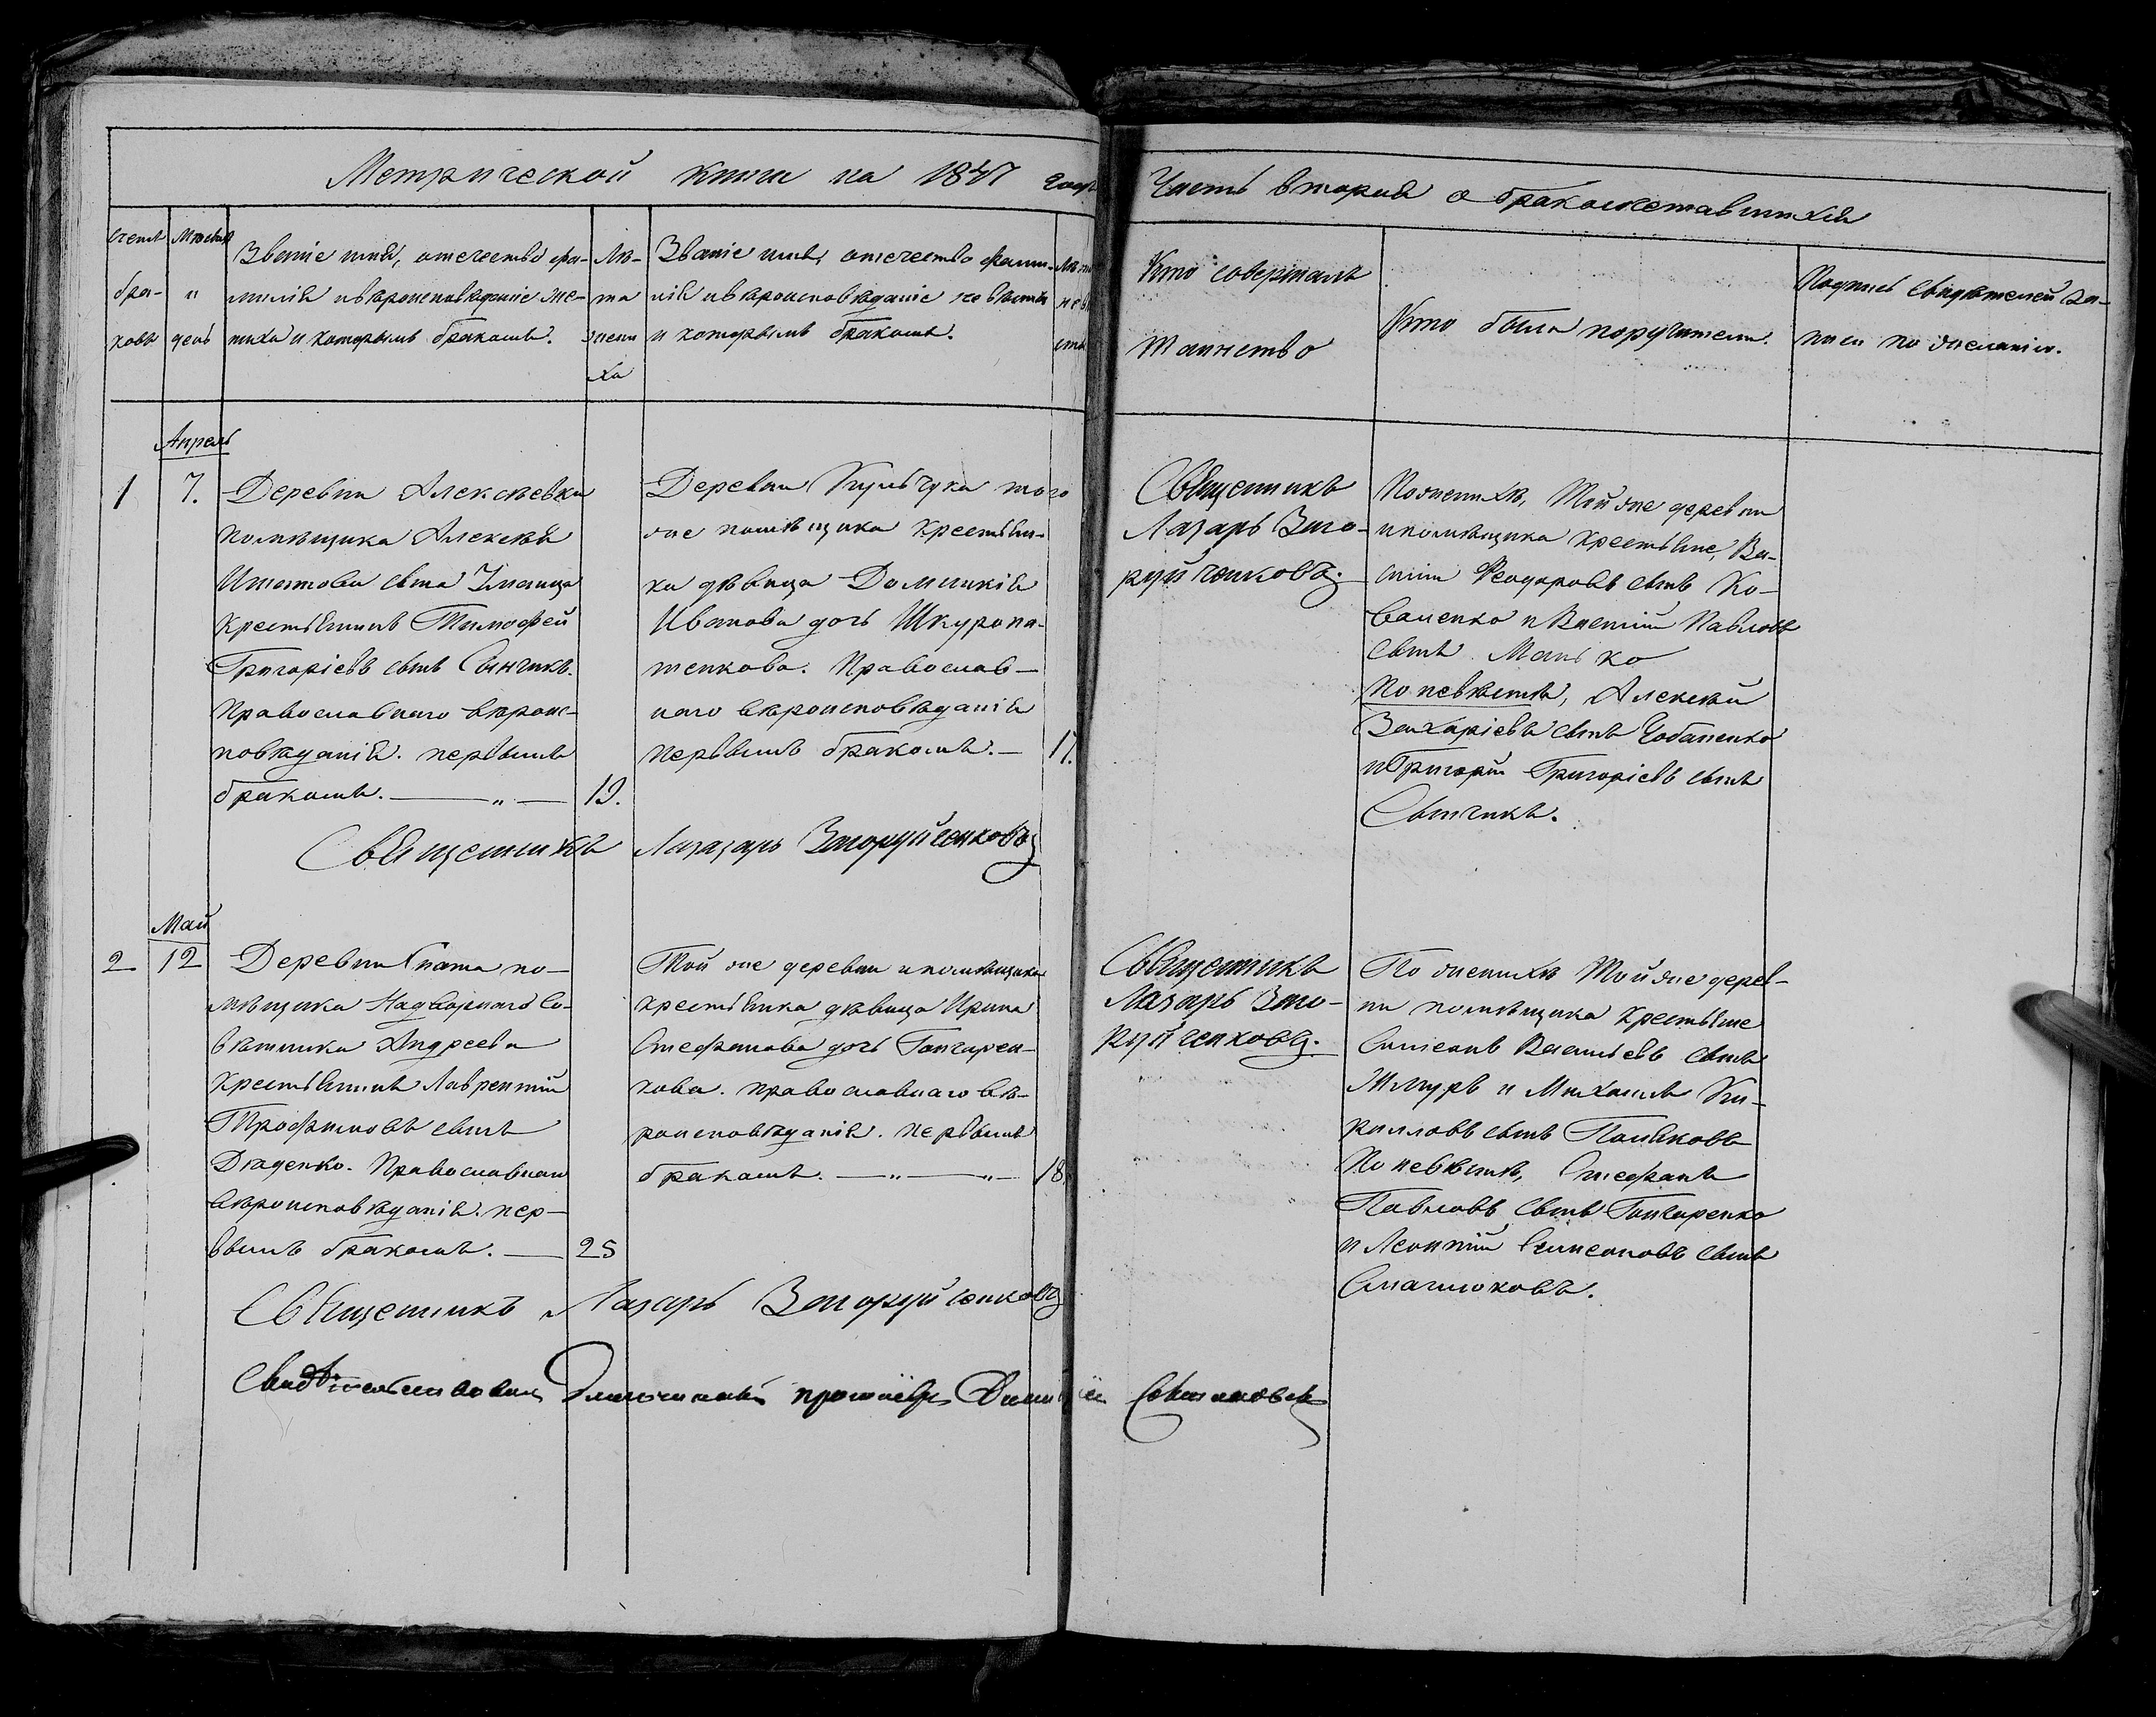 Метрической книги на 1847 года
Часть вторая о бракосочетавшихся
Счетъ
бра-
ковъ
Мѣсяцъ
и
день
Званіе имя, отечество фа-
милія и вѣроисповѣданіе же-
ниха и которымъ бракомъ.
Лѣ-
та
жени
ха
Званіе имя, отечество фами-
лія и вѣроисповѣданіе невѣсты
и которымъ бракомъ.
Лѣта
невѣ
сты
Кто совершалъ
таинство
Кто были поручители.
Подпись свидѣтелей за-
писи по желанію.
Апрель
1
7.
Деревни Алексѣевки
помѣщика Алексѣя
сына
крестьянинъ Тимофей
Григоріевъ сынъ
Православнаго вѣроис-
повѣданія. первымъ
бракомъ. — " —
19.
Деревни Кульчука того
же помѣщика крестьян-
ка дѣвица Домникія
Иванова дочь Шкуропа-
тенкова. Православ-
наго вѣроисповѣданія
первымъ бракомъ. —
17.
Священникъ
Лазарь Заго-
руйченковъ.
По женихѣ, Той же деревни
и помѣщика крестьяне, Ва-
силій Феодоровъ сынъ Ко-
валенко и Василій Павловъ
сынъ Манько
По невѣстѣ, Алексѣй
Захаріевъ сынъ Чобаненко
и Григорій Григоріевъ сынъ
Священникъ Лазарь Загоруйченковъ
Май
2
12
Деревни Спата по-
мѣщика Надворнаго Со-
вѣтника Андреева
крестьянинъ Лаврентій
Трофимовъ сынъ
Дяденко. Православнаго
вѣроисповѣданія. пер-
вымъ бракомъ. —
25
Той же деревни и помѣщика
крестьянка дѣвица Ирина
Стефанова дочь Гончарен-
кова. православнаго вѣ-
роисповѣданія. первымъ
бракомъ. — " — " —
18.
Священникъ
Лазарь Заго-
руйченковъ.
По женихѣ Той же дерев-
ни помѣщика крестьяне
Симеонъ Васильевъ сынъ
Жмуръ и Михаилъ Ки-
рилловъ сынъ Поляковъ
По невѣстѣ, Стефанъ
Павловъ сынъ Гончаренко
и Леонтій Симеоновъ сынъ
Священникъ Лазарь Загоруйченковъ
Свидѣтельствовалъ Благочинный протоіерей Димитрій